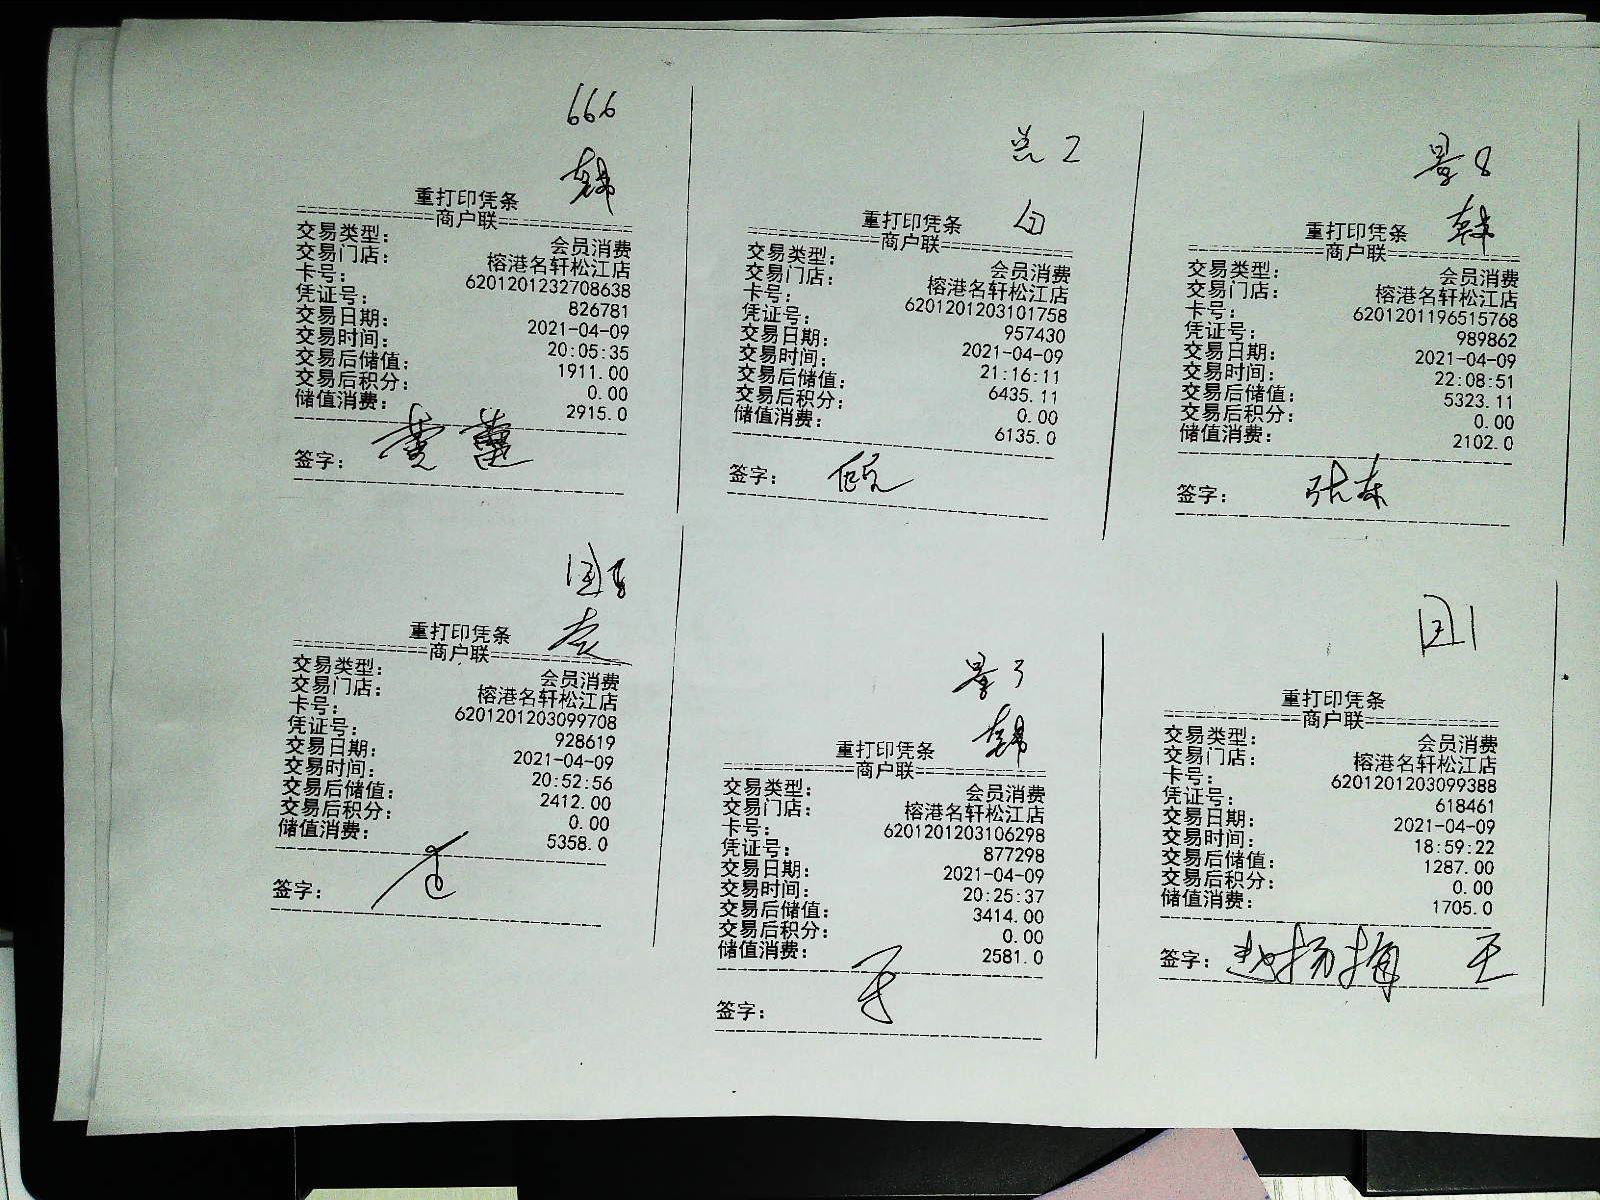 666
韩
重打印凭条
商户联
交易类型: 会员消费
交易门店: 榕港名轩松江店
卡号: 6201201232708638
凭证号: 826781
交易日期: 2021-04-09
交易时间: 20:05:35
交易后储值: 1911.00
交易后积分: 0.00
储值消费: 2915.0
签字:
2
重打印凭条
商户联
交易类型: 会员消费
交易门店: 榕港名轩松江店
卡号: 6201201203101758
凭证号: 957430
交易日期: 2021-04-09
交易时间: 21:16:11
交易后储值: 6435.11
交易后积分: 0.00
储值消费: 6135.0
签字:
景8
韩
重打印凭条
商户联
交易类型: 会员消费
交易门店: 榕港名轩松江店
卡号: 6201201196515768
凭证号: 989862
交易日期: 2021-04-09
交易时间: 22:08:51
交易后储值: 5323.11
交易后积分: 0.00
储值消费: 2102.0
签字: 张东
重打印凭条
商户联
交易类型: 会员消费
交易门店: 榕港名轩松江店
卡号: 6201201203099708
凭证号: 928619
交易日期: 2021-04-09
交易时间: 20:52:56
交易后储值: 2412.00
交易后积分: 0.00
储值消费: 5358.0
签字:
景3
韩
重打印凭条
商户联
交易类型: 会员消费
交易门店: 榕港名轩松江店
卡号: 6201201203106298
凭证号: 877298
交易日期: 2021-04-09
交易时间: 20:25:37
交易后储值: 3414.00
交易后积分: 0.00
储值消费: 2581.0
签字:
重打印凭条
商户联
交易类型: 会员消费
交易门店: 榕港名轩松江店
卡号: 6201201203099388
凭证号: 618461
交易日期: 2021-04-09
交易时间: 18:59:22
交易后储值: 1287.00
交易后积分: 0.00
储值消费: 1705.0
签字: 王